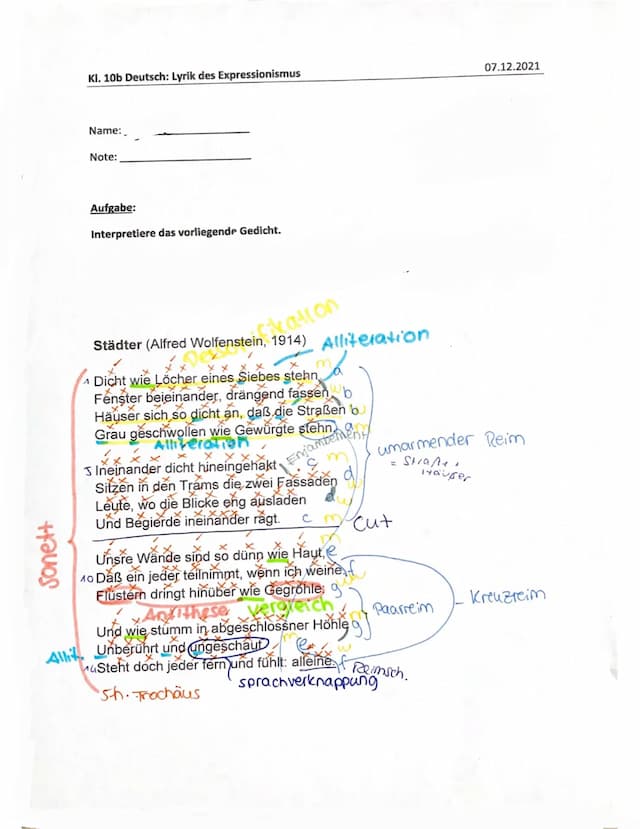 Kl. 10b Deutsch: Lyrik des Expressionismus 07.12.2021
Name:
Note:
Aufgabe:
Interpretiere das vorliegende Gedicht.
Personifikation
Städter (Alfred Wolfenstein, 1914) Alliteration
1 Dicht wie Löcher eines Siebes stehn m a
Fenster beieinander, drängend fassen w b
Häuser sich so dicht an, daß die Straßen b w
Grau geschwollen wie Gewürgte stehn. a m
Alliteration Enjambement
umarmender Reim
= Straße, Häuser
5 Ineinander dicht hineingehakt c m
Sitzen in den Trams die zwei Fassaden d w
Leute, wo die Blicke eng ausladen d w
Und Begierde ineinander ragt. c m Cut
Sonett
Unsre Wände sind so dünn wie Haut, e m
10 Daß ein jeder teilnimmt, wenn ich weine, f w
Flüstern dringt hinüber wie Gegröhle: g w
Antithese Vergleich
Paarreim - Kreuzreim
Und wie stumm in abgeschlossner Höhle g w
Allit. Unberührt und ungeschaut e m
14 Steht doch jeder fern und fühlt: alleine. f w Reimsch.
sprachverknappung
5h. Trochäus